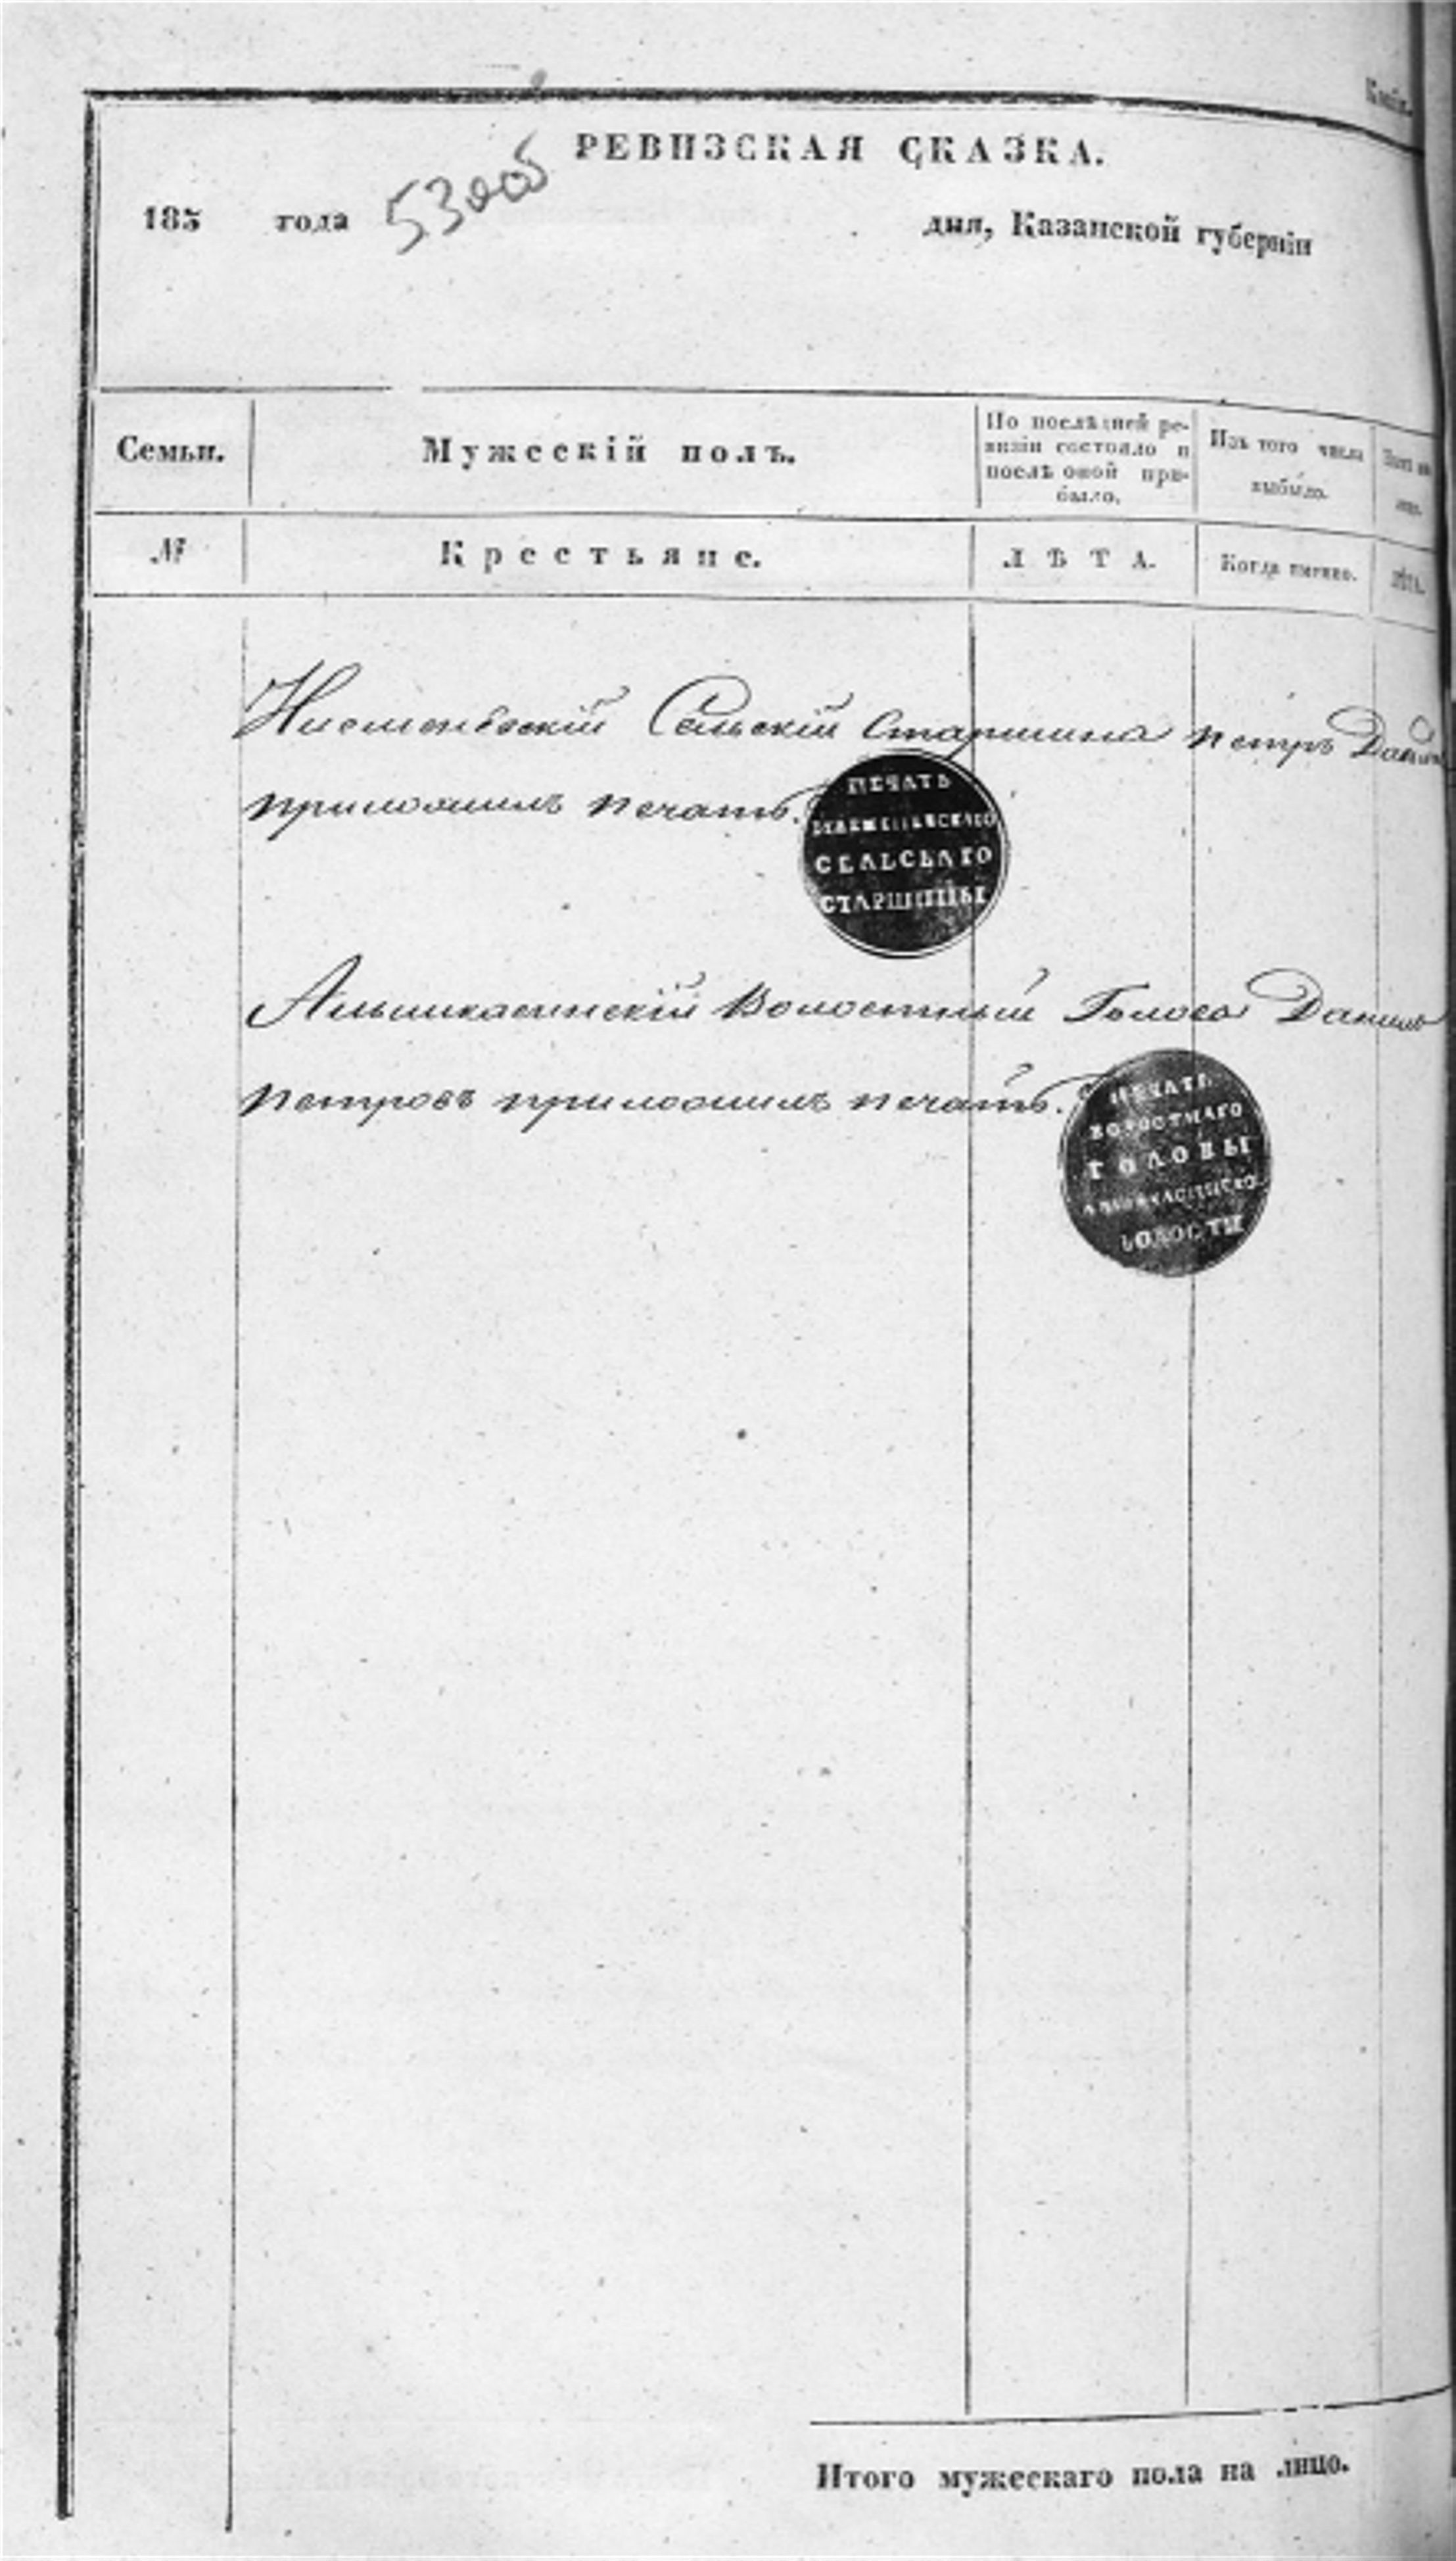 РЕВИЗСКАЯ СКАЗКА.
185 года 530об дня, Казанской губерніи
Семьи.
Мужескій полъ.
По послѣдней ре-
визіи состояло и
послѣ оной при-
было.
Изъ того числа
выбыло.
№
Крестьяне.
ЛѢТА.
Когда именно.
ЛѢТА.
Сельскій Старшина Петръ
приложилъ печать.
ПЕЧАТЬ
СЕЛЬСКАГО
СТАРШИНЫ
Волостный Голова Данилъ
Петровъ приложилъ печать.
ПЕЧАТЬ
ВОЛОСТНАГО
ГОЛОВЫ
ВОЛОСТИ
Итого мужескаго пола на лицо.